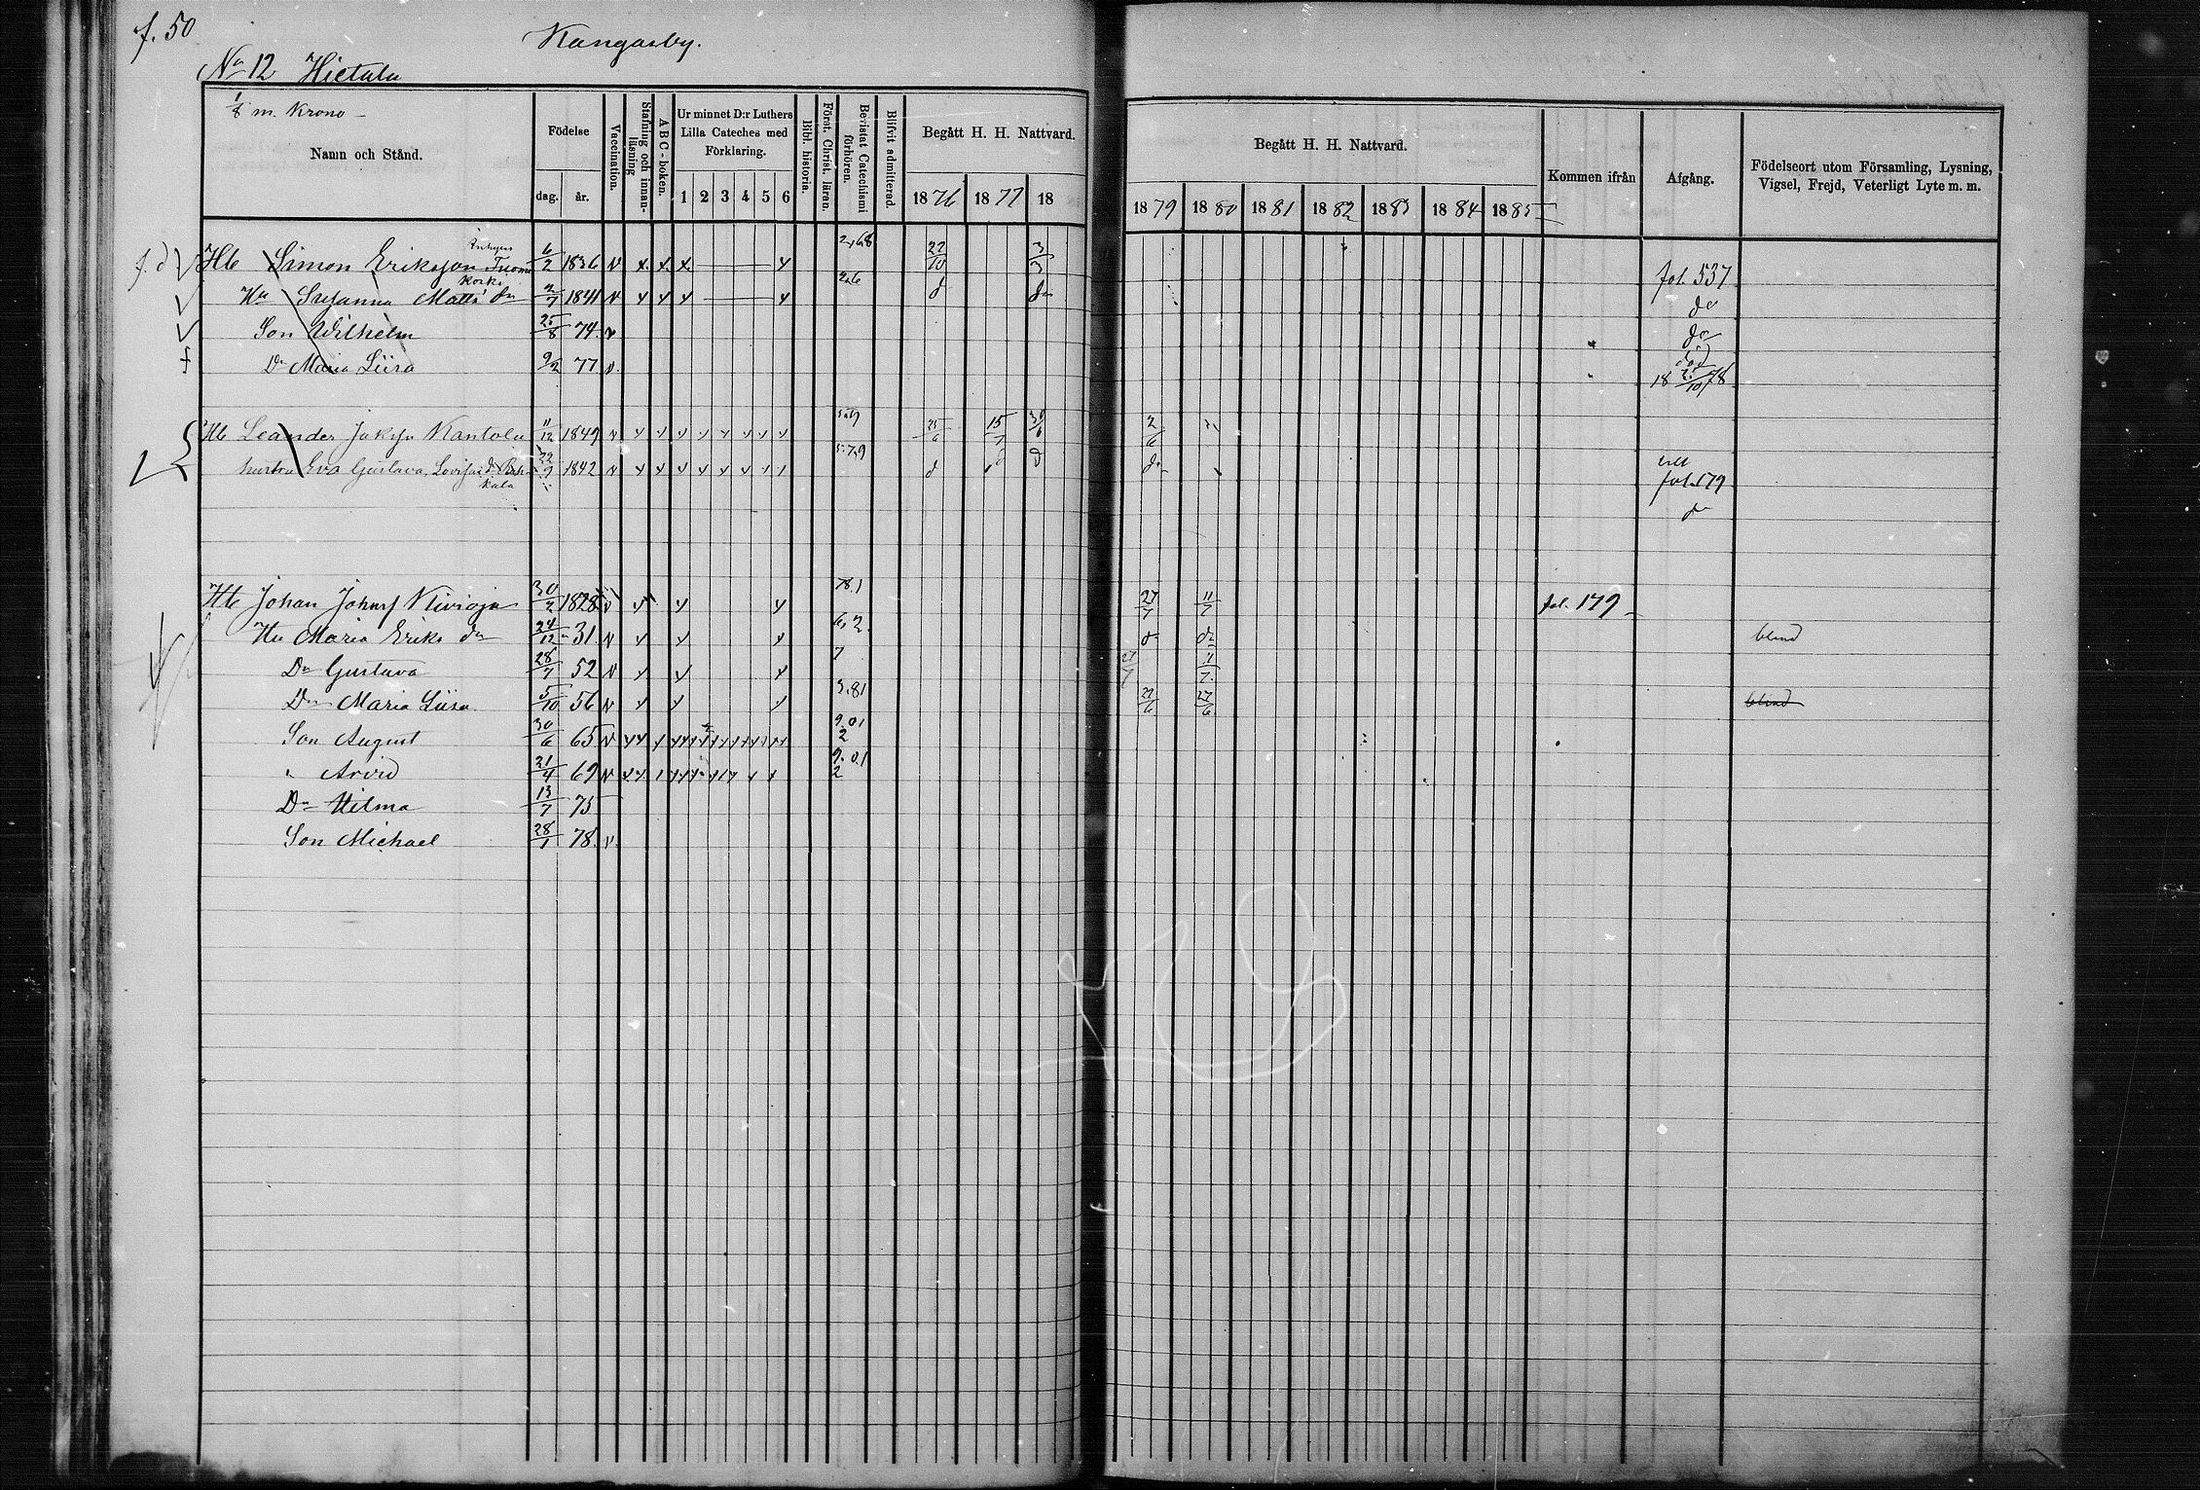 f. 50
Kangasby.
No 12 Hietala
1/8 m. Krono
Namn och Stånd.
Födelse
dag. år.
Vaccination.
Stafning och innanläsning
ABC-boken.
Ur minnet D:r Luthers Lilla Cateches med Förklaring.
1 2 3 4 5 6
Bibl. historia.
Först. Christ. läran.
Bevistat Catechismi förhören.
Blifvit admitterad.
Begått H. H. Nattvard.
1876 1877 18
Begått H. H. Nattvard.
1879 1880 1881 1882 1883 1884 1885
Kommen ifrån
Afgång.
Födelseort utom Församling, Lysning, Vigsel, Frejd, Veterligt Lyte m. m.
Hb Simon Eriksson 6/2 1836 22/10 3/3 fol. 537
Hu Susanna Matts dr 2/7 1841 d do do
Son Wilhelm 25/8 74 do
Dr Maria Liisa 9/2 77 död 18 25/10 78
Hb Leander Jakss Kantola 11/12 1849 25/6 15/7 30/6 2/6
hustru Eva Gustava Lovisa 22/9 1842 5.7.9 d d d do fol. 179
do
Hb Johan Johans Kivioja 30/2 1828 78.1 27/7 11/7 fol. 179
Hu Maria Eriks dr 24/12 31 6.2. do do blind
Dr Gustava 28/7 52 7 27/7 11/7
Dr Maria Liisa 5/10 56 3.81 27/6 27/6 blind
Son August 30/6 65 9.01 2
" Arvid 21/4 69 9.01 2
Dr Hilma 13/7 75
Son Michael 28/1 78